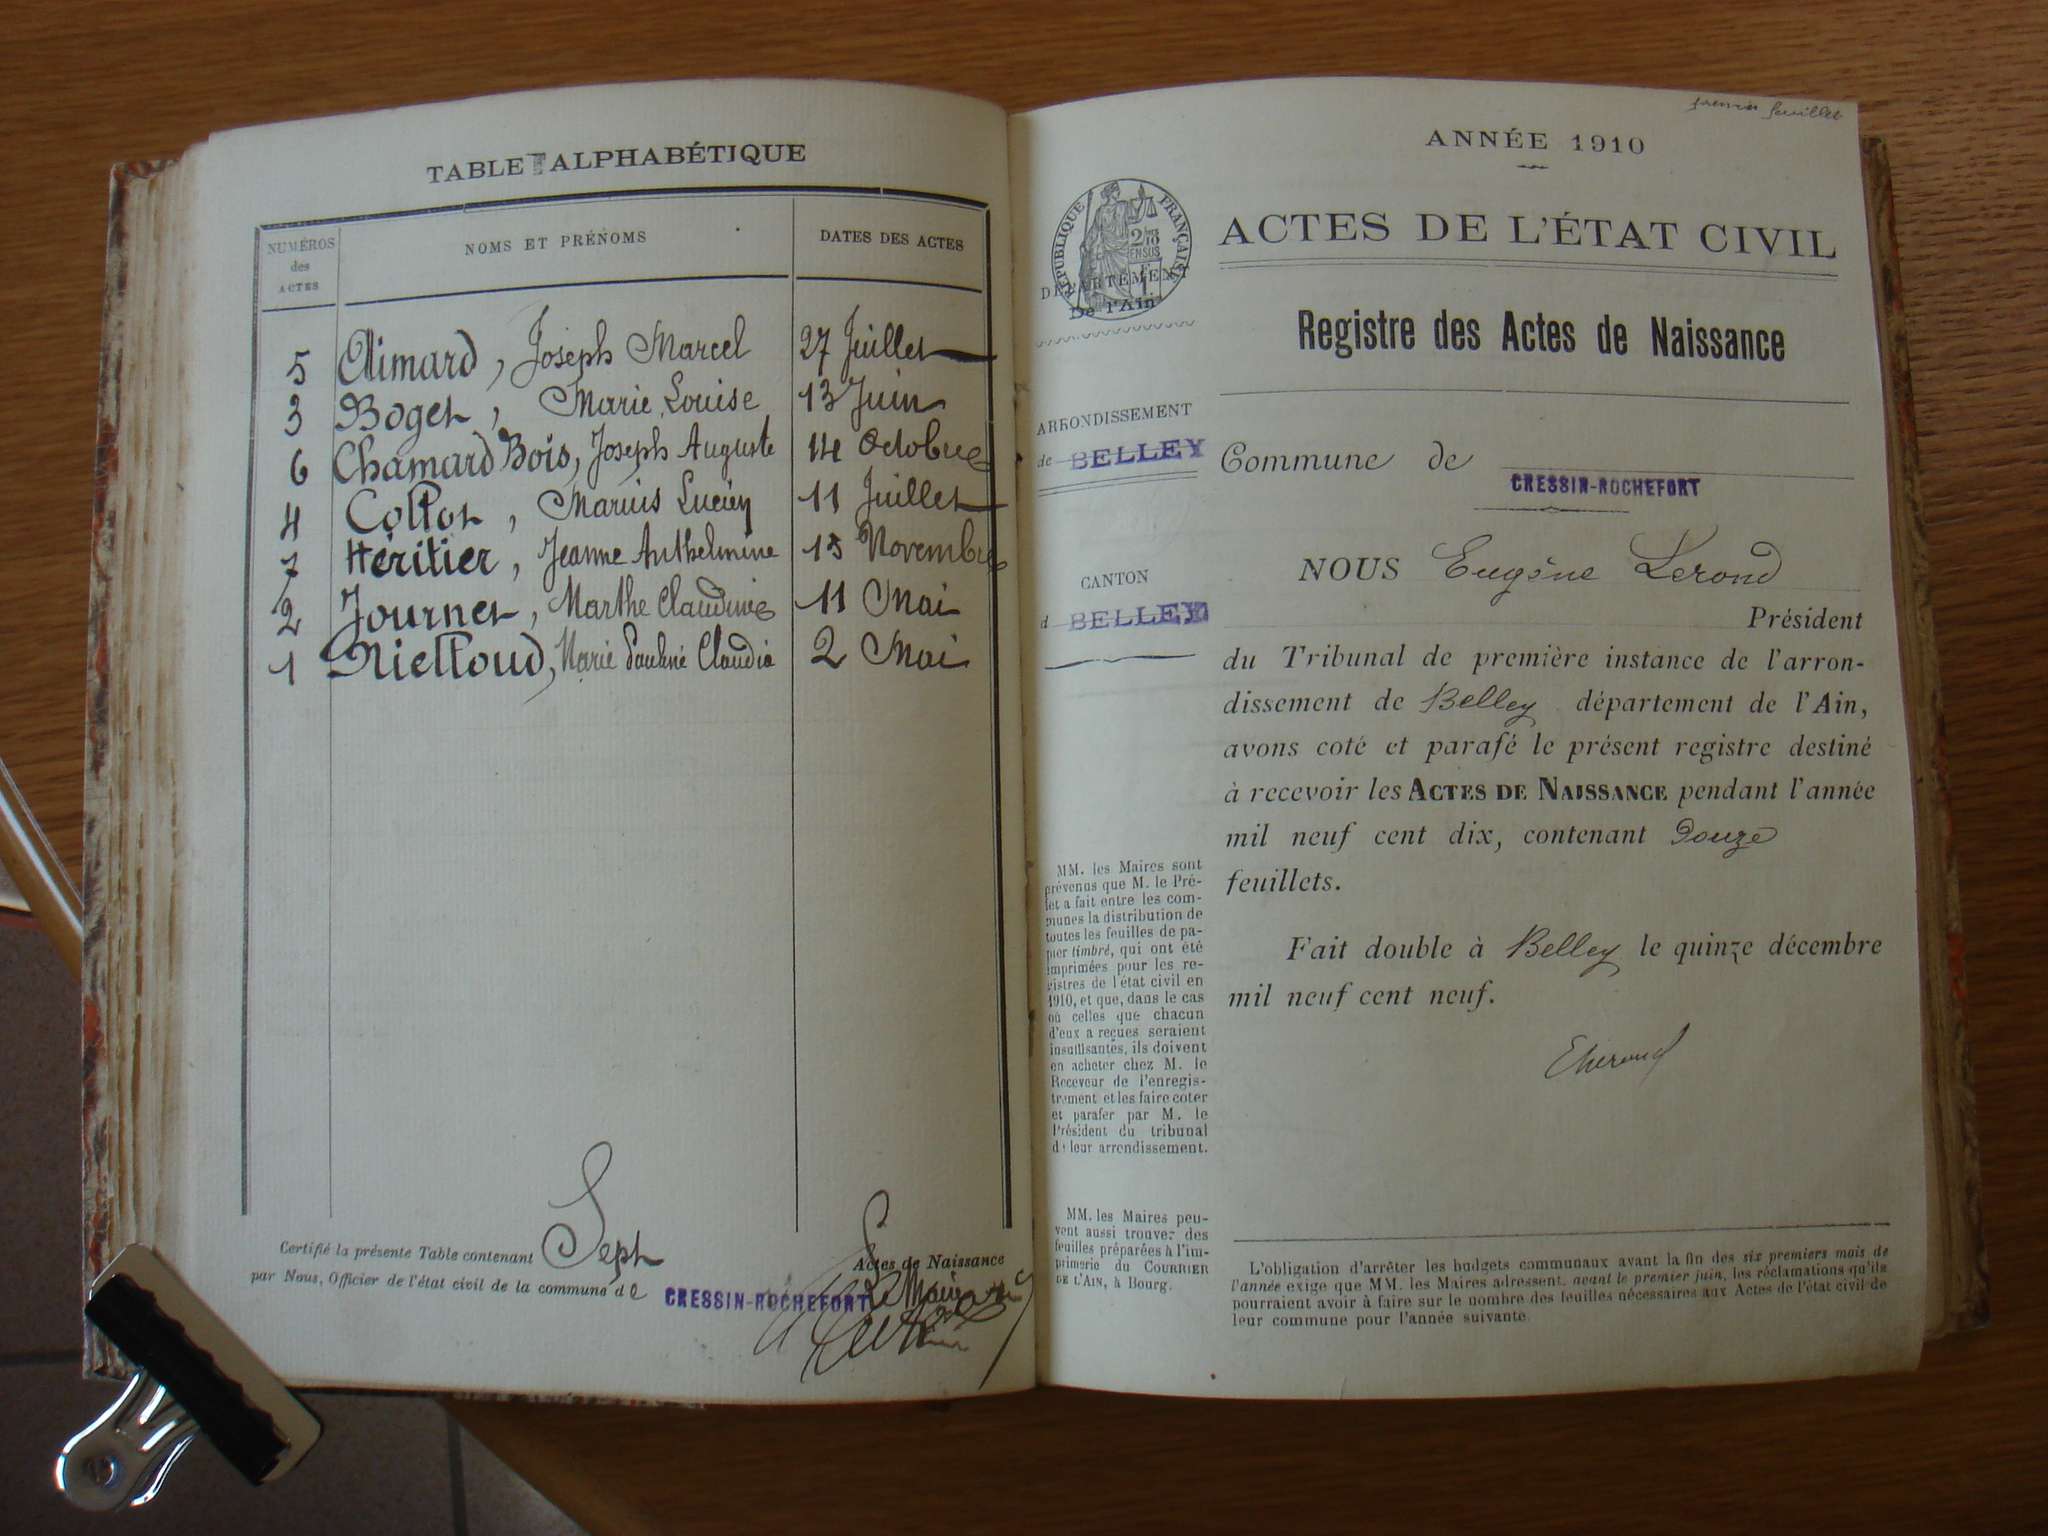 TABLE ALPHABÉTIQUE
NUMÉROS des ACTES
NOMS ET PRÉNOMS
DATES DES ACTES
5 Aimard, Joseph Marcel 27 Juillet
3 Boget, Marie Louise 13 Juin
6 Chamard Bois, Joseph Auguste 14 Octobre
4 Collot, Marius Lucien 11 Juillet
7 Héritier, Jeanne Anthelmine 15 Novembre
2 Journet, Marthe Claudine 11 Mai
1 Nielloud, Marie Pauline Claudia 2 Mai
Certifié la présente Table contenant Sept Actes de Naissance
par Nous, Officier de l'état civil de la commune de CRESSIN-ROCHEFORT
Le Maire
premier feuillet
ANNÉE 1910
RÉPUBLIQUE FRANÇAISE
DÉPARTEMENT
De l'Ain
ACTES DE L'ÉTAT CIVIL
Registre des Actes de Naissance
ARRONDISSEMENT
de BELLEY
Commune de
CRESSIN-ROCHEFORT
CANTON
d BELLEY
NOUS Eugène Lerond
Président
du Tribunal de première instance de l'arron-
dissement de Belley département de l'Ain,
avons coté et parafé le présent registre destiné
à recevoir les ACTES DE NAISSANCE pendant l'année
mil neuf cent dix, contenant Douze
feuillets.
Fait double à Belley le quinze décembre
mil neuf cent neuf.
MM. les Maires sont
prévenus que M. le Pré-
fet a fait entre les com-
munes la distribution de
toutes les feuilles de pa-
pier timbré, qui ont été
imprimées pour les re-
gistres de l'état civil en
1910, et que, dans le cas
où celles que chacun
d'eux a reçues seraient
insuffisantes, ils doivent
en acheter chez M. le
Receveur de l'enregis-
trement et les faire coter
et parafer par M. le
Président du tribunal
de leur arrondissement.
MM. les Maires peu-
vent aussi trouver des
feuilles préparées à l'im-
primerie du COURRIER
DE L'AIN, à Bourg.
L'obligation d'arrêter les budgets communaux avant la fin des six premiers mois de
l'année exige que MM. les Maires adressent, avant le premier juin, les réclamations qu'ils
pourraient avoir à faire sur le nombre des feuilles nécessaires aux Actes de l'état civil de
leur commune pour l'année suivante.